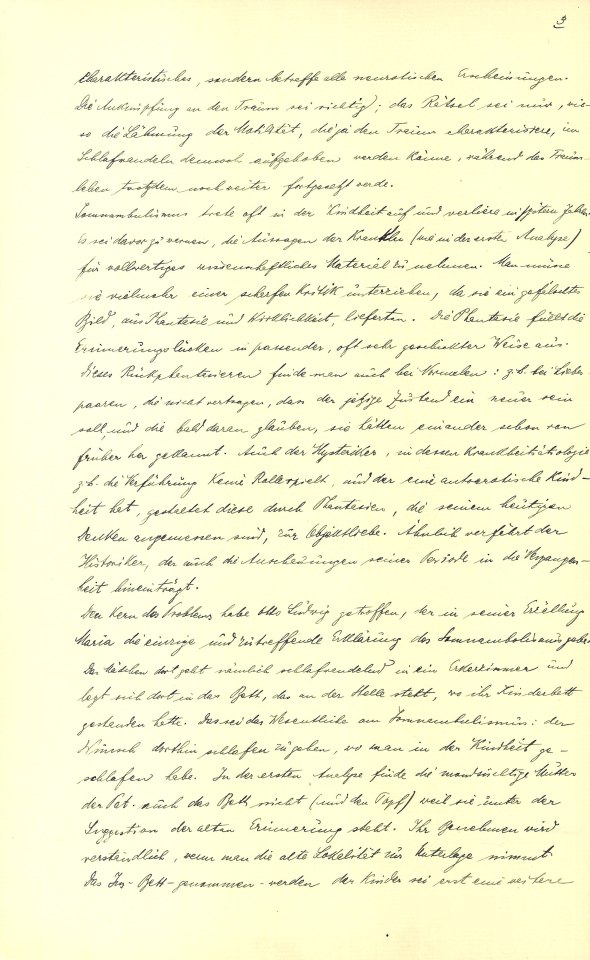 3
charakteristisches, sondern betreffe alle neurotischen Erscheinungen.
Die Anknüpfung an den Traum sei richtig; das Rätsel sei nur, wie-
so die Lähmung der Motilität, die ja den Traum charakterisiere, im
Schlafwandeln dennoch aufgehoben werden könne, während das Traum-
leben trotzdem noch weiter fortgesetzt werde.
Somnambulismus trete oft in der Kindheit auf und verliere in spätern Jahren
Es sei davor zu warnen, die Aussagen der Kranken (wie in der ersten Analyse)
für vollwertiges wissenschaftliches Material zu nehmen. Man müsse
sie vielmehr einer scharfen Kritik unterziehen, da sie ein gefälschtes
Bild, aus Phantasie und Wirklichkeit, lieferten. Die Phantasie fülle die
Erinnerungslücken in passender, oft sehr geschickter Weise aus.
Dieses Rückphantasieren finde man auch bei Normalen: z.b. bei Liebes-
paaren, die nicht vertragen, dass der jetzige Zustand ein neuer sein
soll, und die bald daran glauben, sie hätten einander schon von
früher her gekannt. Auch der Hysteriker, in dessen Krankheitsätiologie
z.b. die Verführung keine Rolle spielt, und der eine autoerotische Kind-
heit hat, gestaltet diese durch Phantasien, die seinem heutigen
Denken angemessen sind, zur Objektliebe. Ähnlich verfährt der
Historiker, der auch die Anschauungen seiner Periode in die Vergangen-
heit hineinträgt.
Den Kern des Problems habe Otto Ludwig getroffen, der in seiner Erzählung
Maria die einzige und zutreffende Erklärung des Somnambulismus gebe.
Das Mädchen dort geht nämlich schlafwandelnd in ein Erkerzimmer und
legt sich dort in das Bett, das an der Stelle steht, wo ihr Kinderbett
gestanden hatte. Das sei das Wesentliche am Somnambulismus: der
Wunsch dorthin schlafen zu gehen, wo man in der Kindheit ge-
schlafen habe. In der ersten Analyse finde die mondsüchtige Mutter
der Pat. auch das Bett nicht (und den Topf) weil sie unter der
Suggestion der alten Erinnerung steht. Ihr Benehmen wird
verständlich, wenn man die alte Lokalität zur Unterlage nimmt.
Das Ins-Bett-genommen-werden der Kinder sei erst eine weitere